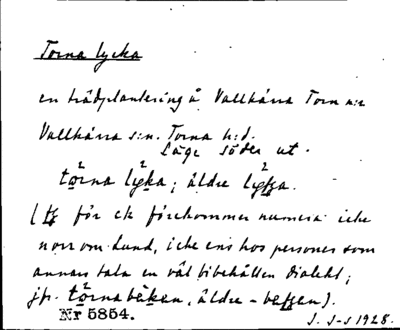 Torna lycka
en trädplantering å Vallkärra Torn n:r
Vallkärra s:n. Torna h:d.
Läge söder ut.
tòrna lyka; äldre
( för ck förekommer numera icke
norr om Lund, icke ens hos personer som
annars tala en väl bibehållen dialekt;
jfr. tòrna bäken, äldre -
Nr 5854.
J. S-s 1928.